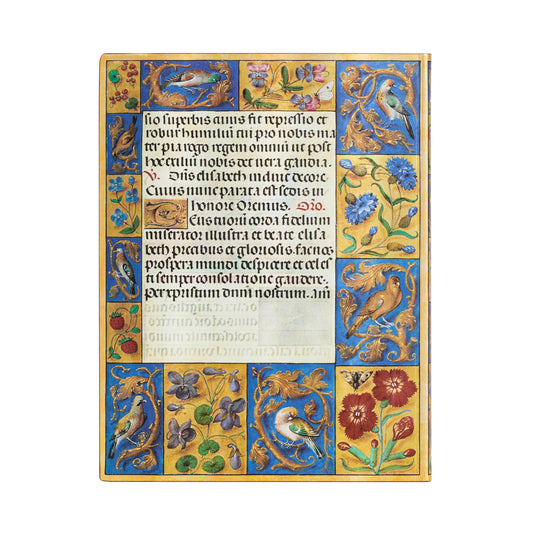 sio superbis cuius fit repressio et
robur humiliũ tu pro nobis ma
ter pia rogo regem omniũ ut post
hoc exiliũ nobis det uera gaudia.
V. Dñs elisabeth induit decore
Cuius nunc parata est sedis in
honore Oremus. Oro.
Deus tuorũ corda fidelium
miserator illustra et beate elisa
beth precibus et gloriosis fac nos
prospera mundi despicere et celes
ti semper consolatione gaudere.
Per xpistum dnm nostrum. am